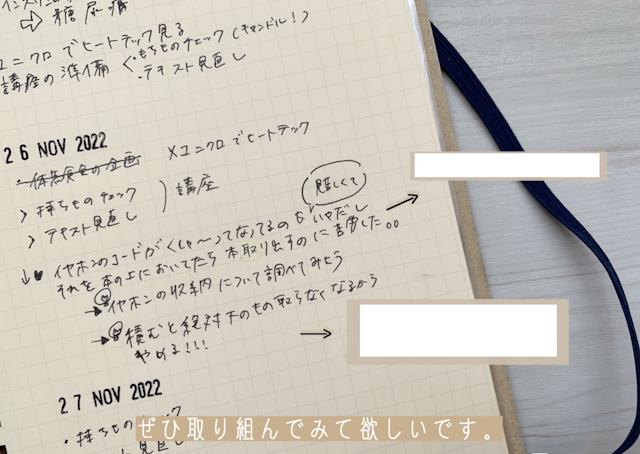 ⇨ 糖尿病
ユニクロでヒートテック見る
講座の準備 <・もちものチェック (キャンドル!)
・テキスト見直し
26 NOV 2022
・体感実食の企画 ×ユニクロでヒートテック
> 持ちものチェック
> テキスト見直し ) 講座
(見苦しくて)
↓♥ イヤホンのコードがぐしゃ〜ってなってるのもいやだし
それを本の上においてたら本取り出すのに苦労した。。
→イヤホンの収納について調べてみよう
→積むと絶対下のもの取らなくなるから
やめる!!!
27 NOV 2022
・持ちものチェック
ト見直し
ぜひ取り組んでみて欲しいです。